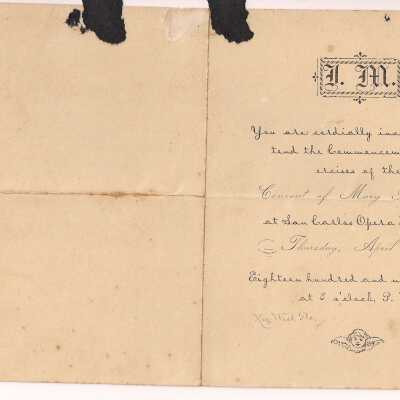 I. M.
You are cordially in
tend the Commencem
ercises of the
Convent of Mary
at San Carlos Opera
Thursday, April
Eighteen hundred and n
at 3 o'clock, P.
Key West Fla.